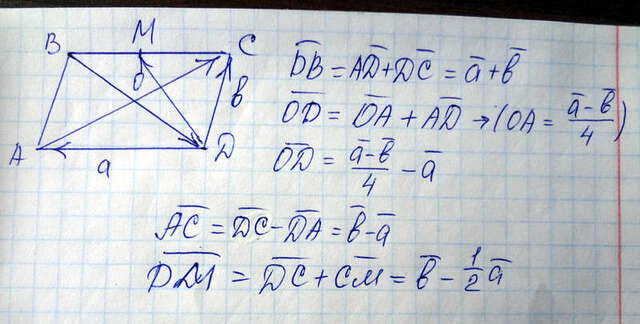 B M C
O
A a D в
D̅B̅ = A̅D̅ + D̅C̅ = a̅ + в̅
O̅D̅ = O̅A̅ + A̅D̅ → (OA = (a̅ - в̅)/4)
O̅D̅ = (a̅ - в̅)/4 - a̅
A̅C̅ = D̅C̅ - D̅A̅ = в̅ - a̅
D̅M̅ = D̅C̅ + C̅M̅ = в̅ - 1/2 a̅